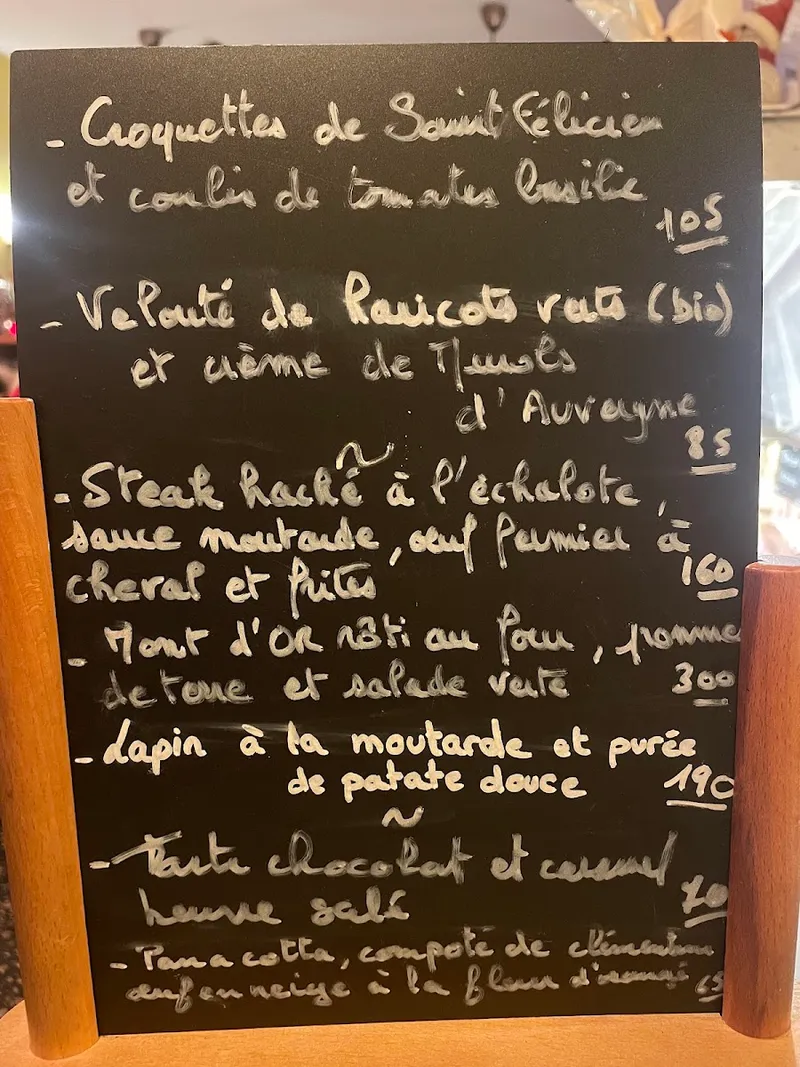 - Croquettes de Saint Félicien
et coulis de tomates basilic
105
- Velouté de haricots verts (bio)
et crème de
d'Auvergne
85
~
- Steak haché à l'échalote,
sauce moutarde, oeuf fermier à
cheval et frites
160
- Mont d'OR rôti au four, pomme
de terre et salade verte
300
- Lapin à la moutarde et purée
de patate douce
190
~
- Tarte chocolat et caramel
beurre salé
70
- Panacotta, compote de clémentine
oeuf en neige à la fleur d'orange
65